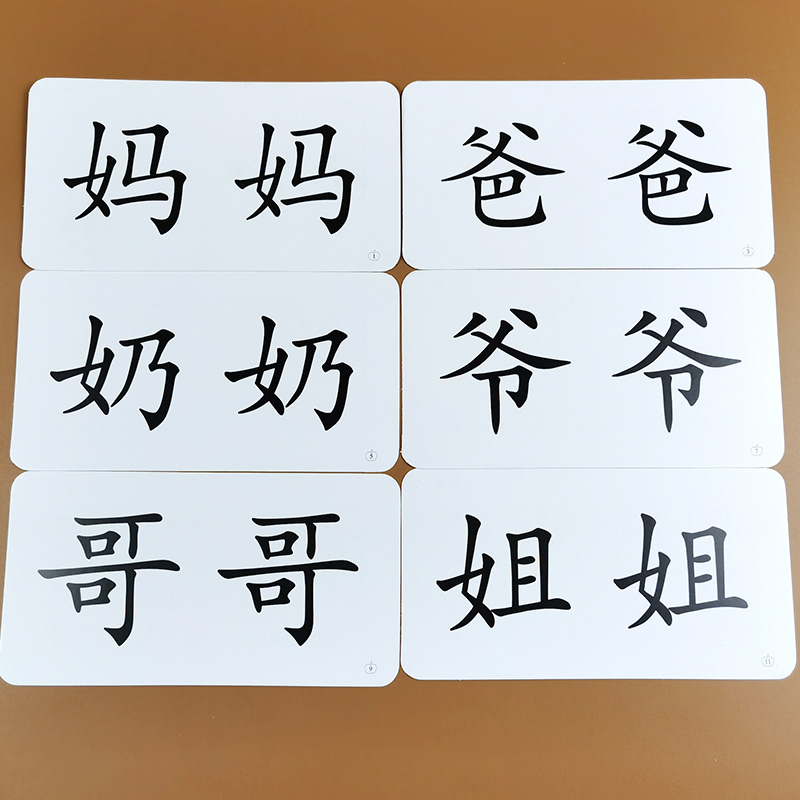 妈妈
1
爸爸
3
奶奶
5
爷爷
7
哥哥
9
姐姐
11